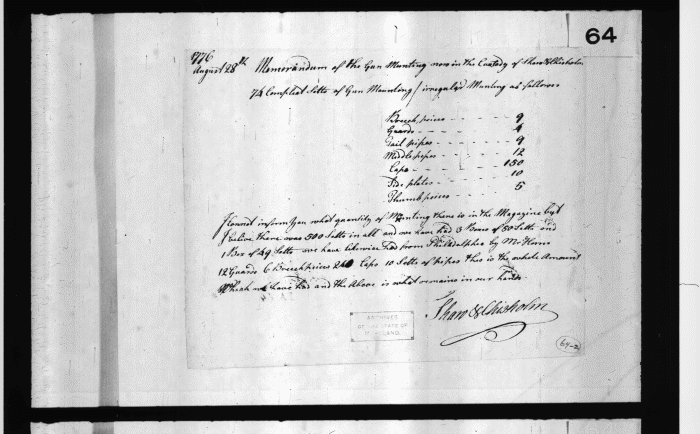 64
1776
August 28th Memorandum of the Gun Munting now in the Custody of Shaw & Chisholm
74 Compleat Setts of Gun Mounting / irregular Munting as follows
Breech pieces - - - - - 9
Guards - - - - - 4
Tail pipes - - - - - 9
Middle pipes - - - - - 12
Caps - - - - - 150
Side plates - - - - - 10
Thumb pieces - - - - - 5
I Cannot inform you what quantity of Munting there is in the Magazine but
I belive there was 500 Setts in all and we have had 3 Boxes of 50 Setts and
1 Box of 49 Setts we have likewise had from Philadelphia by Mr
12 Guards 6 Breech pieces Caps 10 Setts of pipes this is the whole Amount
Which we have had and the Above is what remains in our hands
Shaw & Chisholm
ARCHIVES
OF THE STATE OF
MARYLAND.
64-2